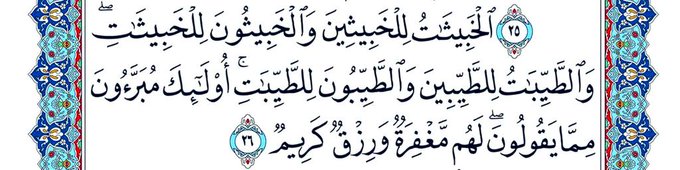 ۝٢٥ ٱلْخَبِيثَٰتُ لِلْخَبِيثِينَ وَٱلْخَبِيثُونَ لِلْخَبِيثَٰتِۖ
وَٱلطَّيِّبَٰتُ لِلطَّيِّبِينَ وَٱلطَّيِّبُونَ لِلطَّيِّبَٰتِۚ أُو۟لَٰٓئِكَ مُبَرَّءُونَ
مِمَّا يَقُولُونَۖ لَهُم مَّغْفِرَةٌ وَرِزْقٌ كَرِيمٌ ۝٢٦